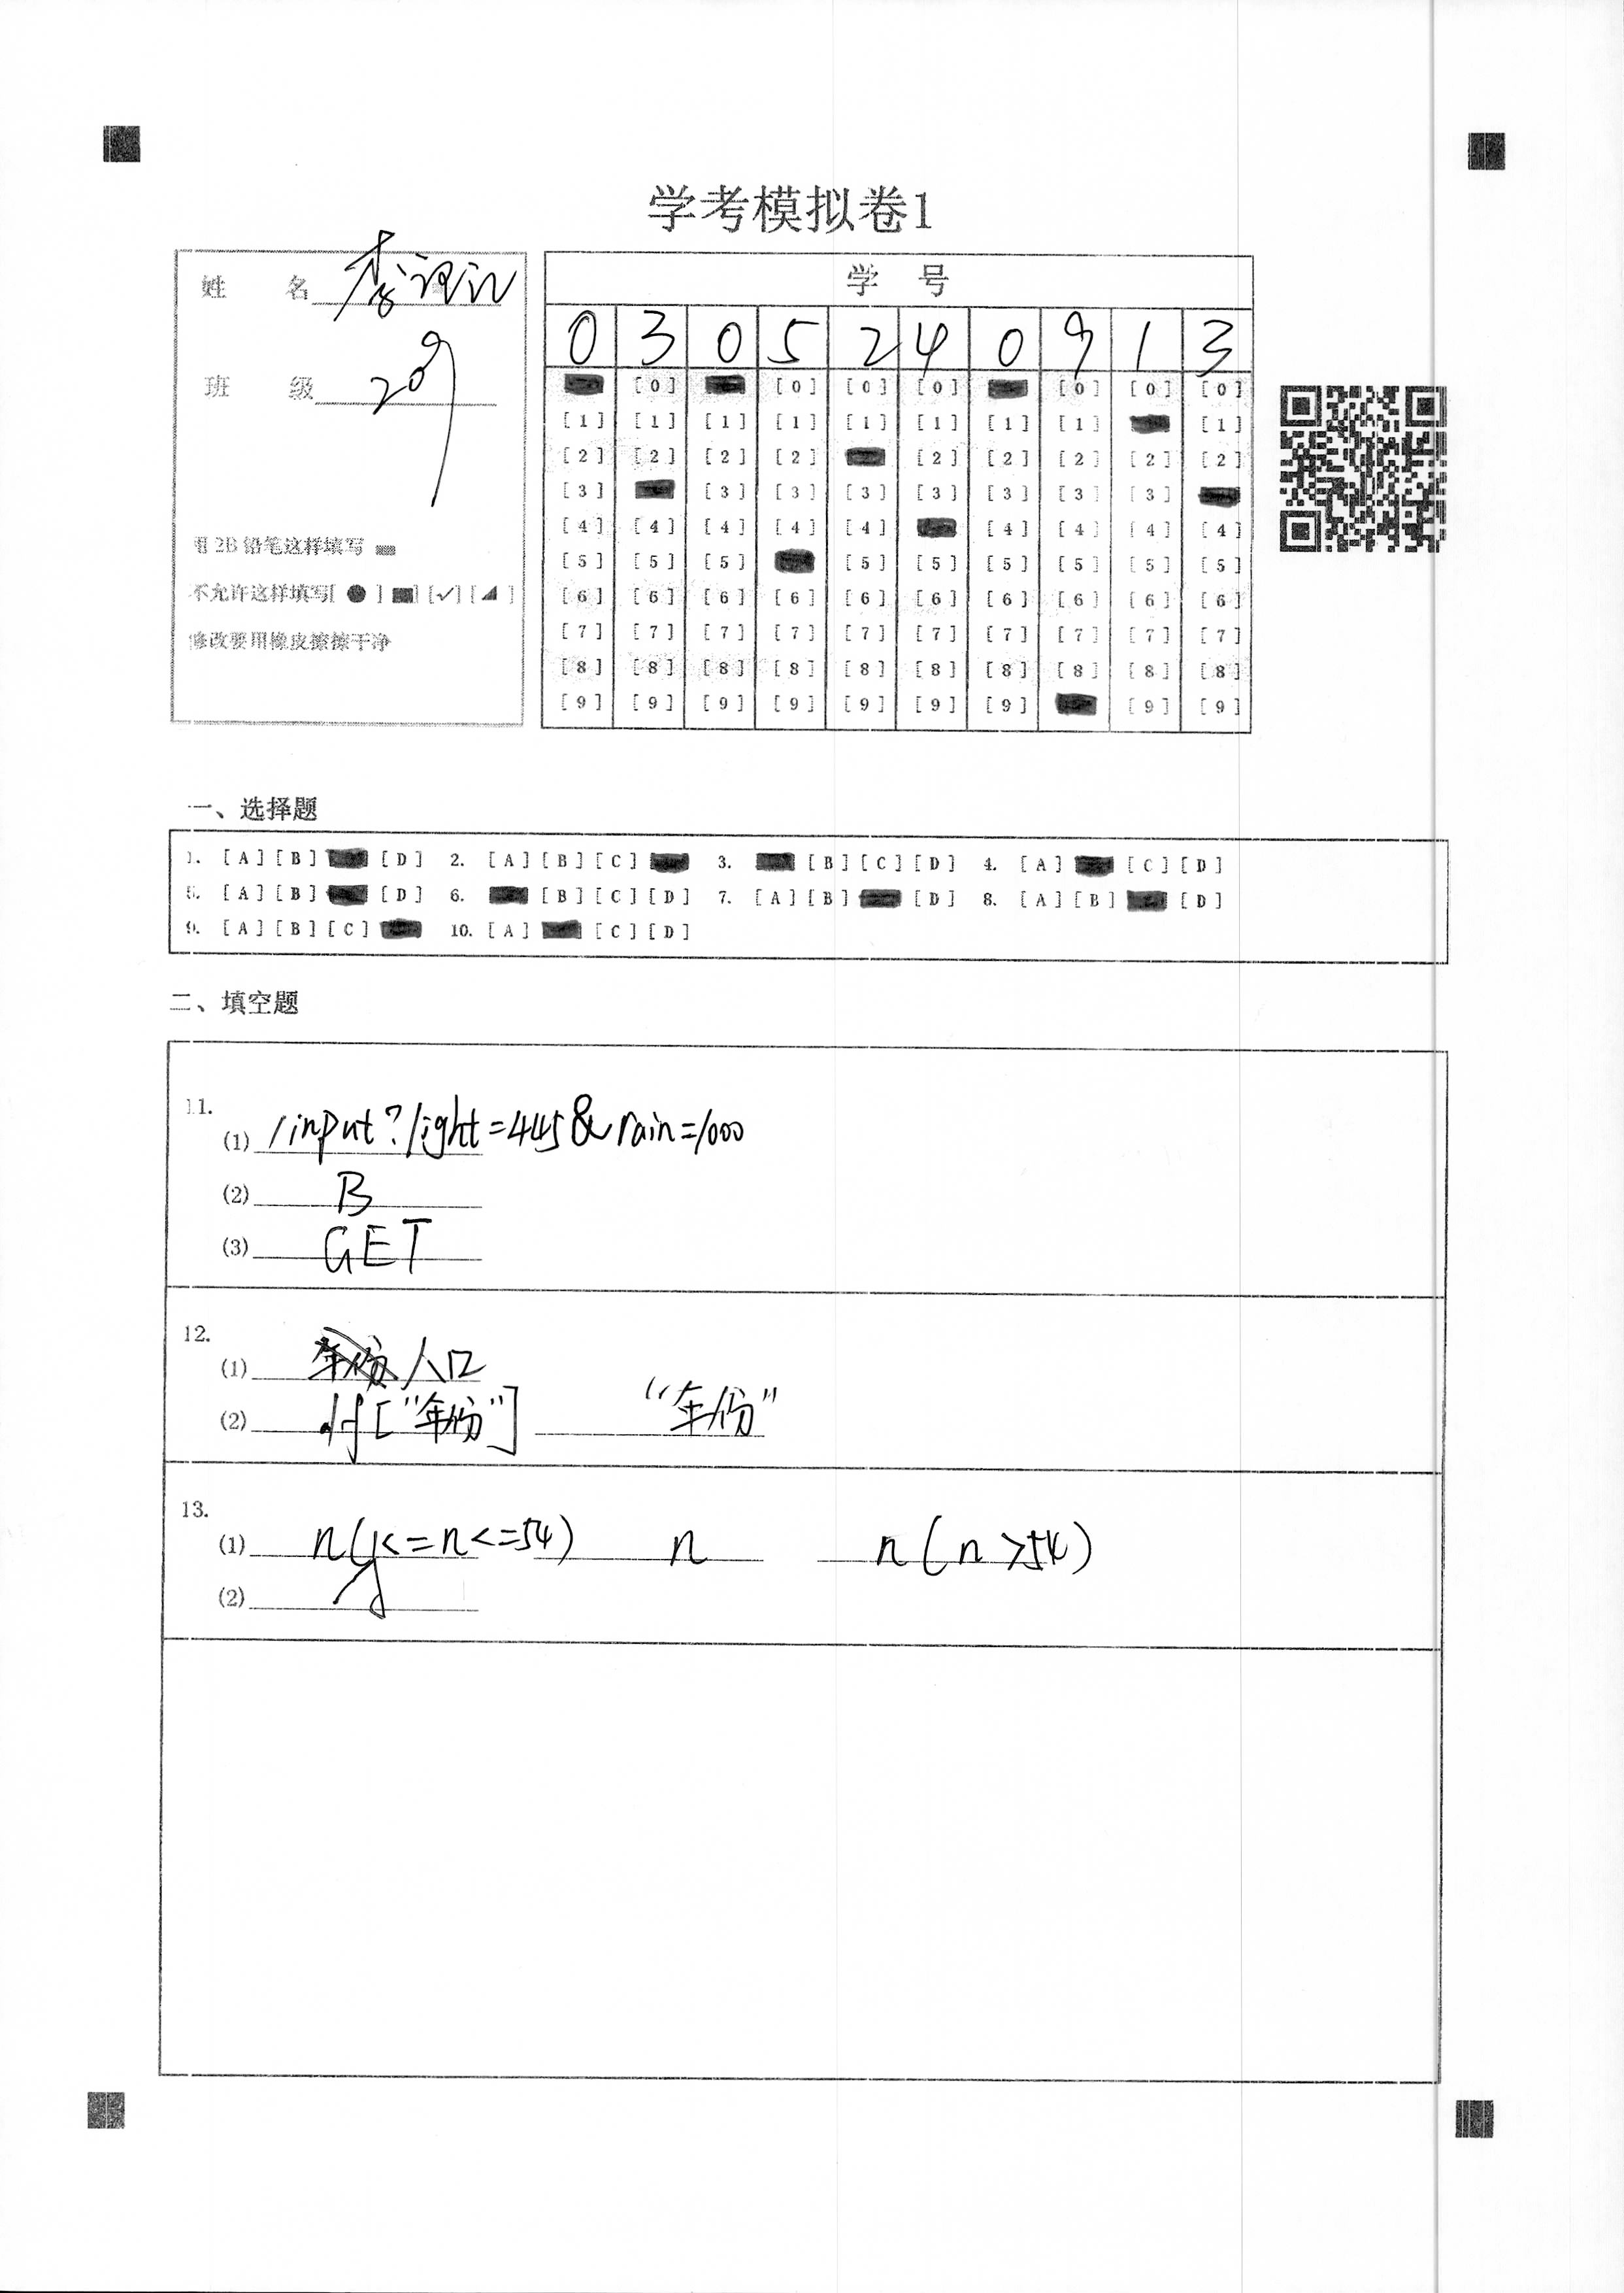 学考模拟卷1
姓 名 李
班 级 209
用2B铅笔这样填写
不允许这样填写[●] [■] [✓] [◢]
修改要用橡皮擦擦干净
学 号
0 3 0 5 2 4 0 9 1 3
[0] [0] [0] [0] [0] [0] [0]
[1] [1] [1] [1] [1] [1] [1] [1] [1]
[2] [2] [2] [2] [2] [2] [2] [2] [2]
[3] [3] [3] [3] [3] [3] [3] [3]
[4] [4] [4] [4] [4] [4] [4] [4] [4]
[5] [5] [5] [5] [5] [5] [5] [5] [5]
[6] [6] [6] [6] [6] [6] [6] [6] [6] [6]
[7] [7] [7] [7] [7] [7] [7] [7] [7] [7]
[8] [8] [8] [8] [8] [8] [8] [8] [8] [8]
[9] [9] [9] [9] [9] [9] [9] [9] [9]
一、选择题
1. [A] [B] [D] 2. [A] [B] [C] 3. [B] [C] [D] 4. [A] [C] [D]
5. [A] [B] [D] 6. [B] [C] [D] 7. [A] [B] [D] 8. [A] [B] [D]
9. [A] [B] [C] 10. [A] [C] [D]
二、填空题
11.
(1) /input?light=445&rain=1000
(2) B
(3) GET
12.
(1) 人口
(2) df["年份"] "年份"
13.
(1) n(y<=n<=54) n n(n>54)
(2)